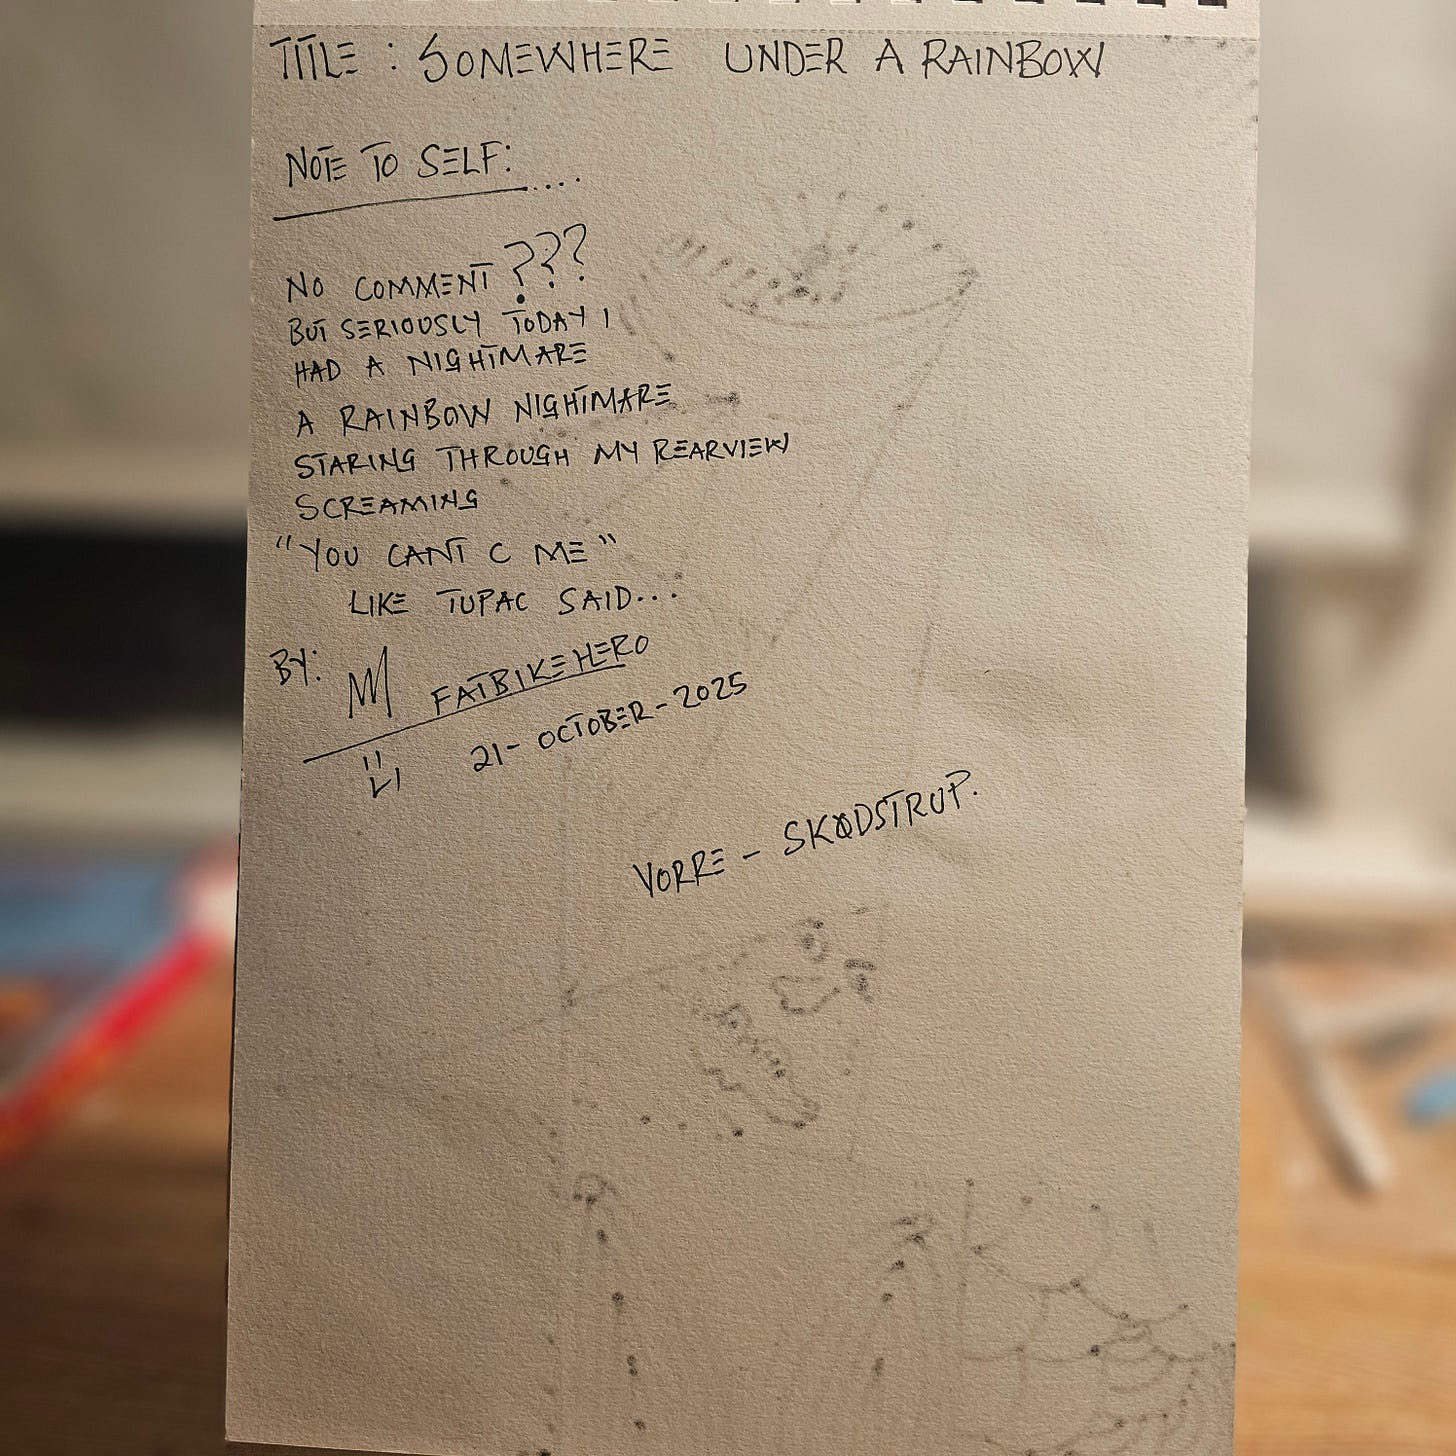 TITLE : SOMEWHERE UNDER A RAINBOW
NOTE TO SELF:....
NO COMMENT ???
BUT SERIOUSLY TODAY I
HAD A NIGHTMARE
A RAINBOW NIGHTMARE
STARING THROUGH MY REARVIEW
SCREAMING
"YOU CANT C ME"
LIKE TUPAC SAID...
BY: FATBIKEHERO
21-OCTOBER-2025
VORRE - SKØDSTRUP.